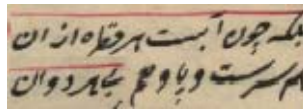 بلکه چون آبست هر قطره ازان
هم سرست و پا و هم بی هر دوان